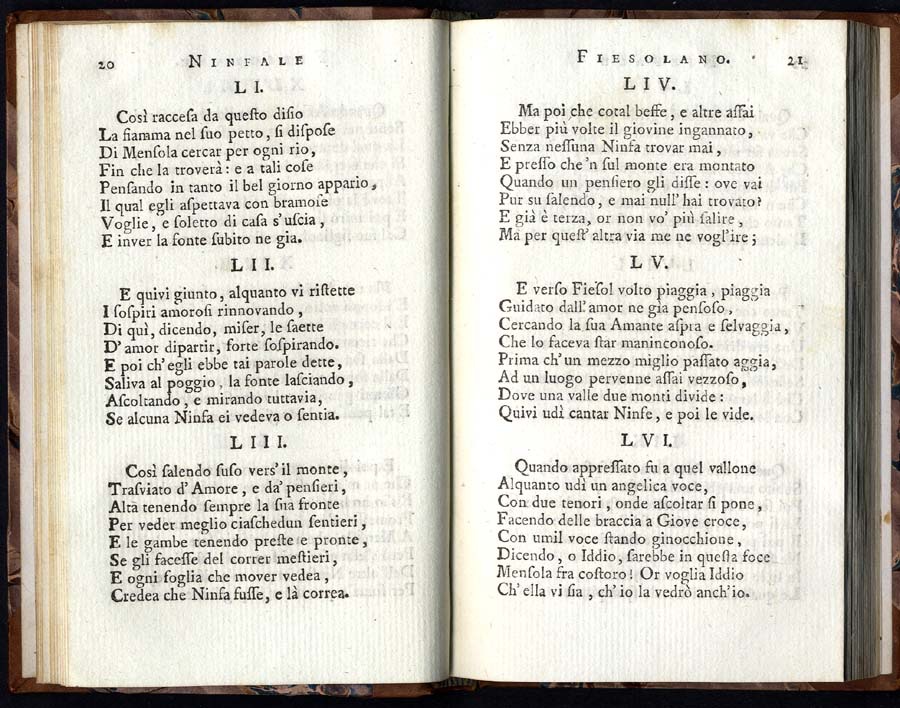 20 NINFALE
LI.
Così raccesa da questo disio
La fiamma nel suo petto, si dispose
Di Mensola cercar per ogni rio,
Fin che la troverà: e a tali cose
Pensando in tanto il bel giorno appario,
Il qual egli aspettava con bramose
Voglie, e soletto di casa s'uscia,
E inver la fonte subito ne gia.
LII.
E quivi giunto, alquanto vi ristette
I sospiri amorosi rinnovando,
Di quì, dicendo, miser, le saette
D'amor dipartir, forte sospirando.
E poi ch'egli ebbe tai parole dette,
Saliva al poggio, la fonte lasciando,
Ascoltando, e mirando tuttavia,
Se alcuna Ninfa ei vedeva o sentia.
LIII.
Così salendo suso vers'il monte,
Trasviato d'Amore, e da' pensieri,
Alta tenendo sempre la sua fronte
Per veder meglio ciaschedun sentieri,
E le gambe tenendo preste e pronte,
Se gli facesse del correr mestieri,
E ogni foglia che mover vedea,
Credea che Ninfa fusse, e là correa.
FIESOLANO. 21
LIV.
Ma poi che cotal beffe, e altre assai
Ebber più volte il giovine ingannato,
Senza nessuna Ninfa trovar mai,
E presso che'n sul monte era montato
Quando un pensiero gli disse: ove vai
Pur su salendo, e mai null'hai trovato?
E già è terza, or non vo' più salire,
Ma per quest'altra via me ne vogl'ire;
LV.
E verso Fiesol volto piaggia, piaggia
Guidato dall'amor ne gia pensoso,
Cercando la sua Amante aspra e selvaggia,
Che lo faceva star maninconoso.
Prima ch'un mezzo miglio passato aggia,
Ad un luogo pervenne assai vezzoso,
Dove una valle due monti divide:
Quivi udì cantar Ninfe, e poi le vide.
LVI.
Quando appressato fu a quel vallone
Alquanto udì un angelica voce,
Con due tenori, onde ascoltar si pone,
Facendo delle braccia a Giove croce,
Con umil voce stando ginocchione,
Dicendo, o Iddio, sarebbe in questa foce
Mensola fra costoro! Or voglia Iddio
Ch'ella vi sia, ch'io la vedrò anch'io.